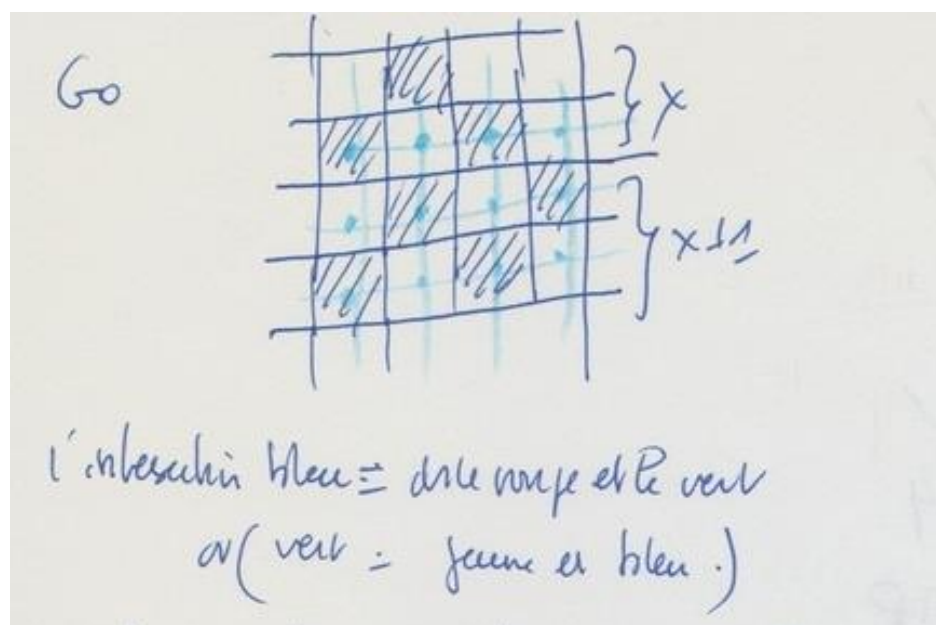 Go
x
x
l'intersection bleu = le rouge et le vert
or (vert = jaune et bleu.)